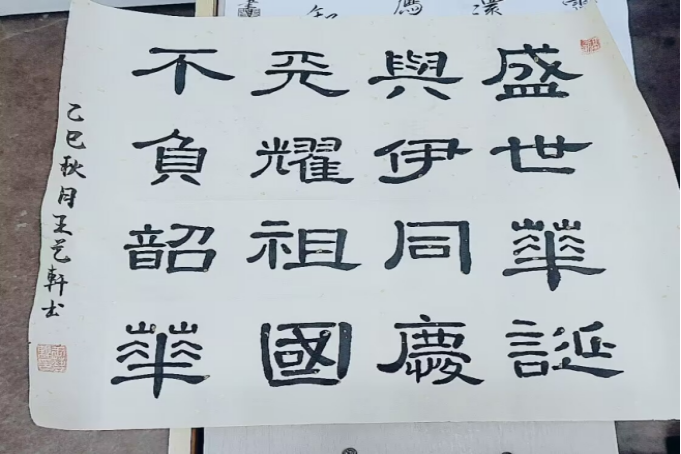 盛世華誕
與伊同慶
光耀祖國
不負韶華
乙巳秋月王艺軒书